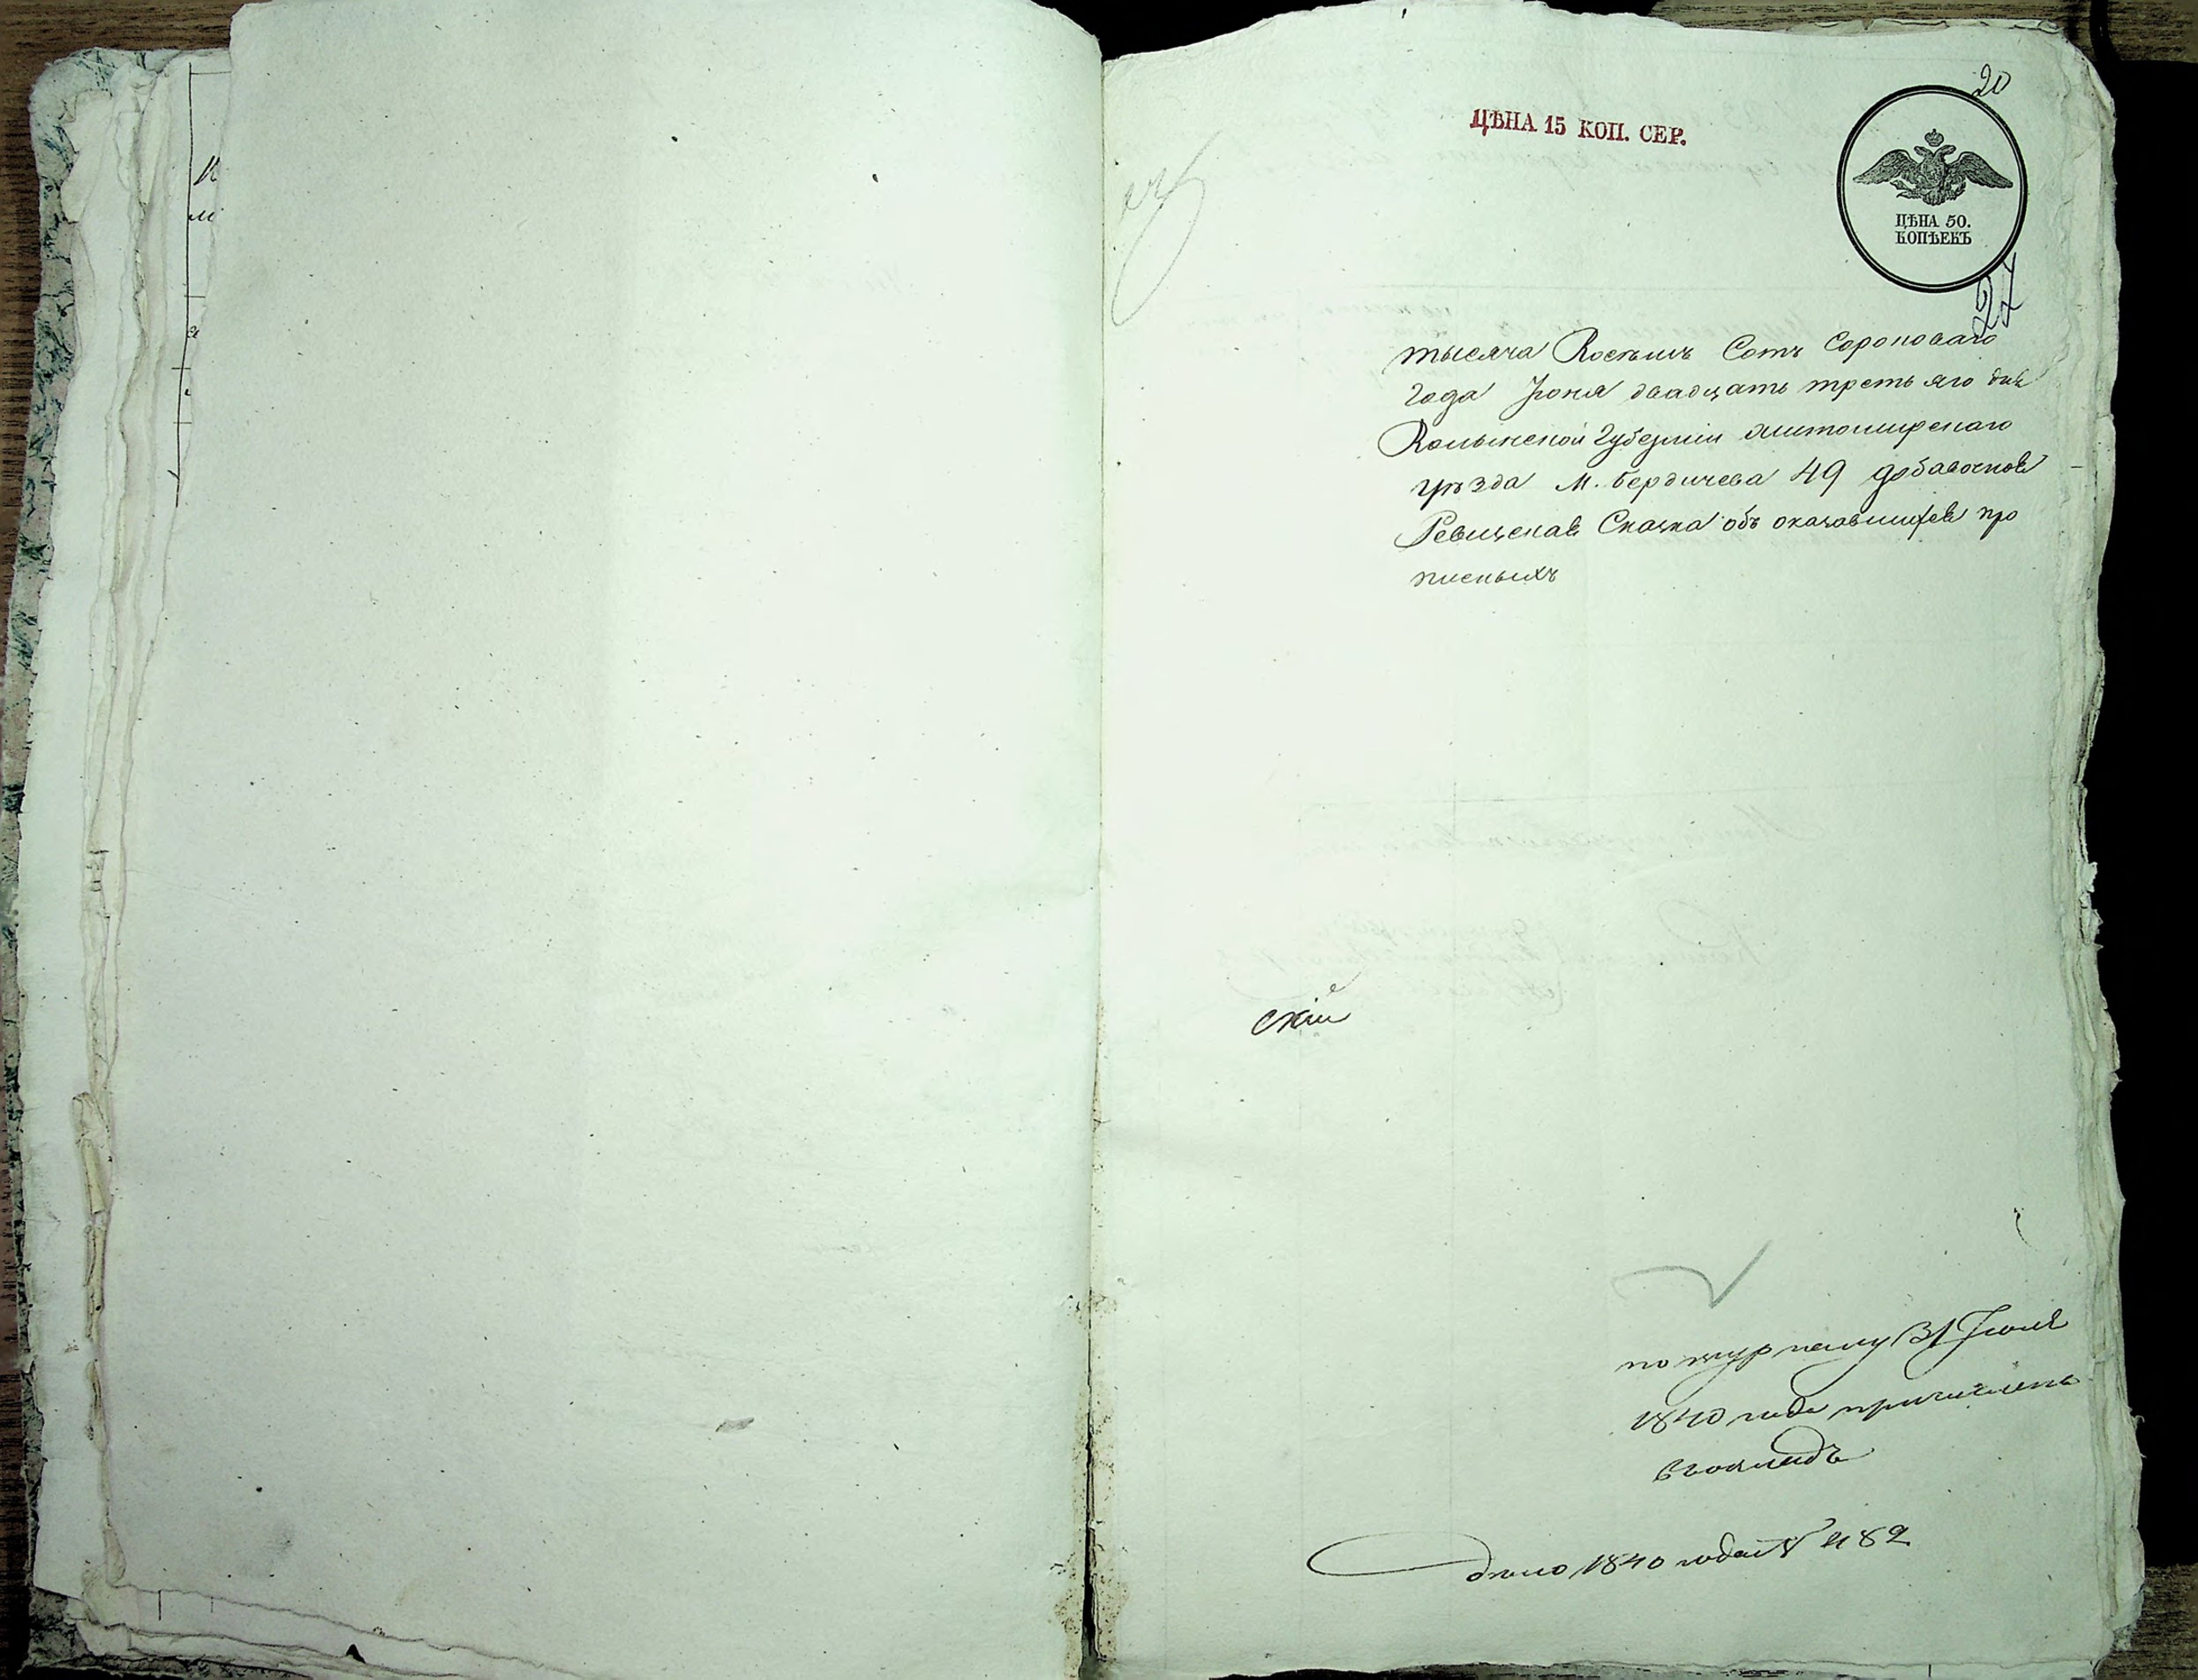 20
ЦѢНА 15 КОП. СЕР.
ЦѢНА 50.
КОПѢЕКЪ
27
тысяча Восемь Сотъ Сороковаго
года Іюня двадцать третьяго дня
Волынской Губерніи Житомирскаго
уѣзда М. Бердичева 49 добавочная
Ревизская Сказка объ оказавшихся про
писныхъ
скій
по журналу 31 Іюля
1840 года причислены
въ окладъ
дѣло 1840 года № 482